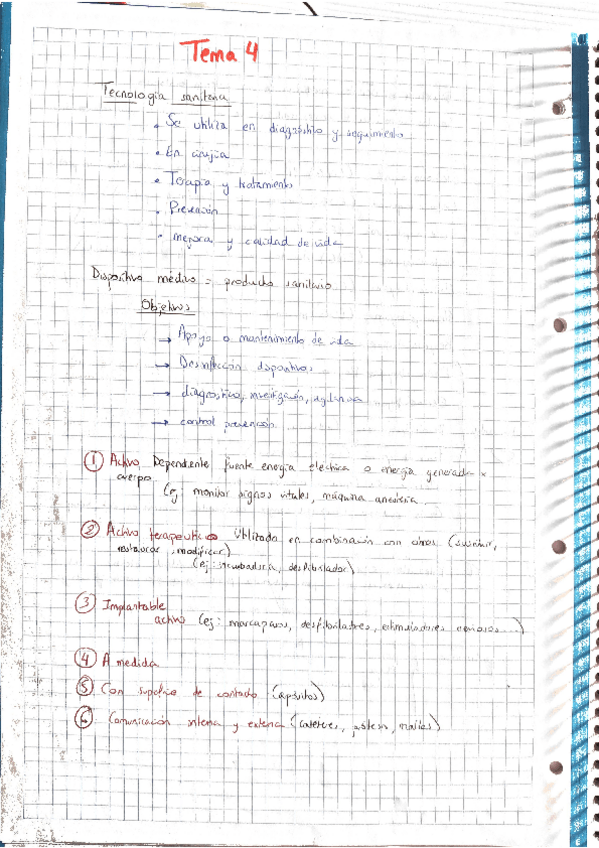 Tema 4
Tecnología sanitaria
• Se utiliza en diagnóstico y seguimiento
• En cirujía
• Terapia y tratamiento
• Prevención
• mejora y calidad de vida
Dispositivo médico = producto sanitario
Objetivos
→ Apoyo o mantenimiento de vida
→ Desinfección dispositivos
→ diagnostico, investigación, vigilancia
→ control prevención
① Activo, Dependiente fuente energia electrica o energia generada x
cuerpo
(ej: monitor signos vitales, máquina anestesia
② Activo terapeutico Utilizado en combinación con otros (sustituir,
restaurar, modificar)
(ej: incubadora, desfibrilador)
③ Implantable
activo (ej: marcapasos, desfibriladores, estimuladores ...)
④ A medida
⑤ Con superficie de contacto (apósitos)
⑥ Comunicación interna y externa (cateteres,